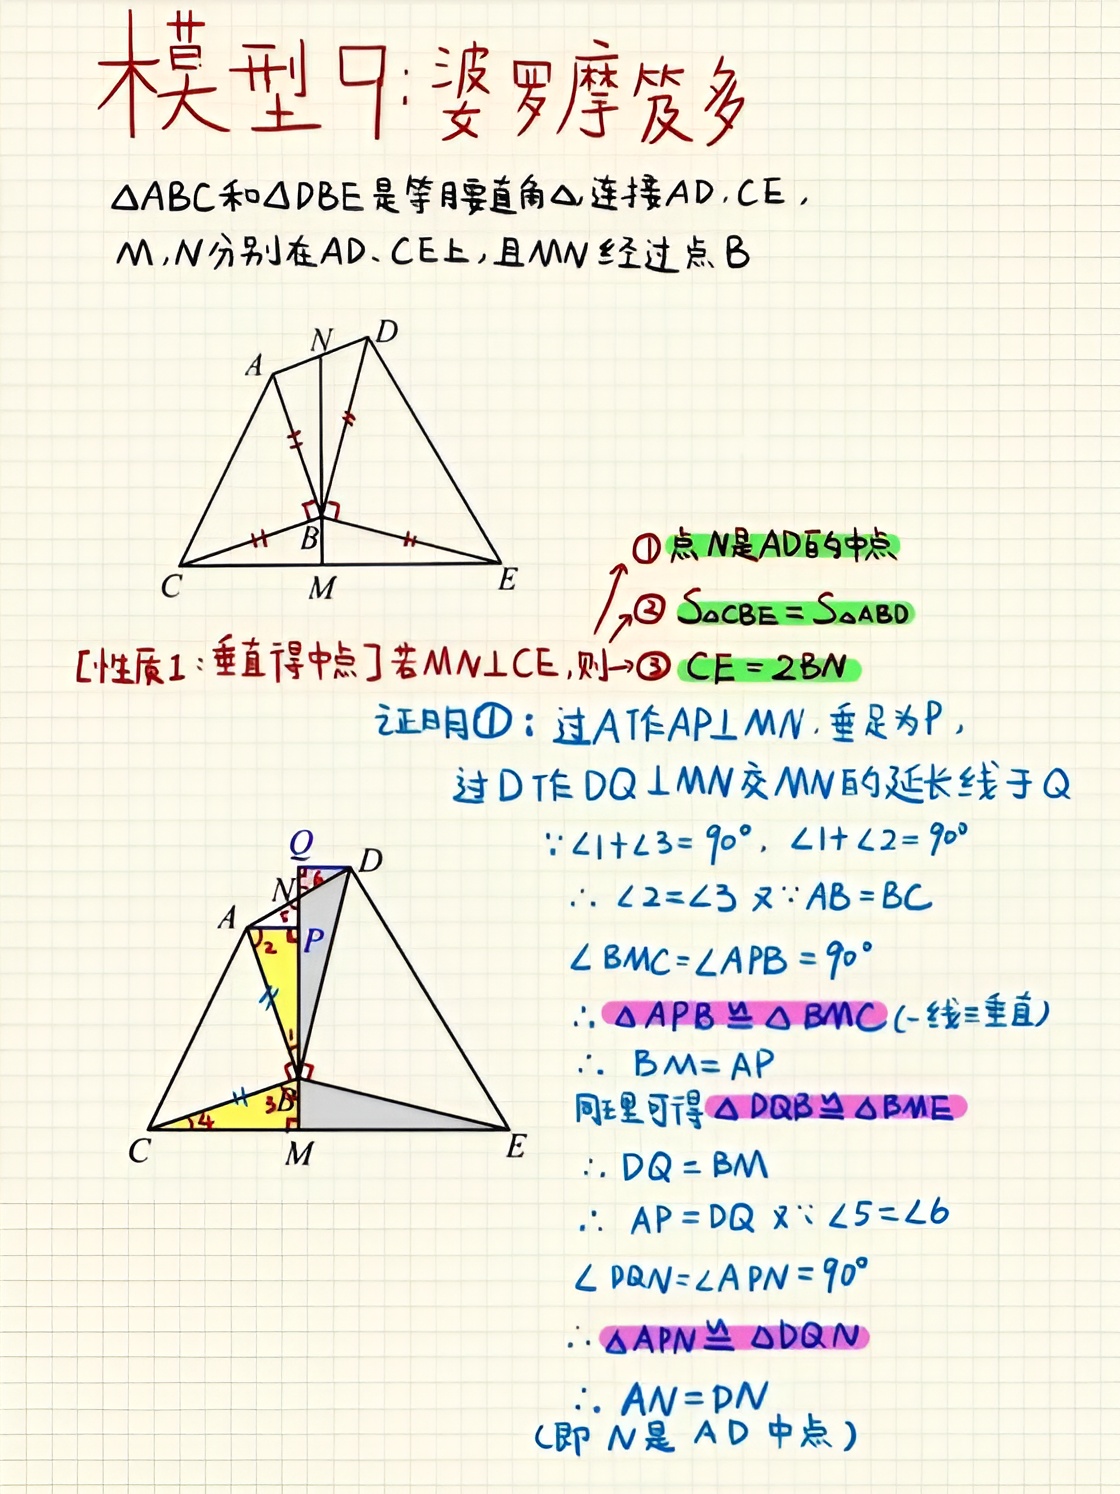 模型9:婆罗摩笈多
△ABC和△DBE是等腰直角△,连接AD,CE,
M,N分别在AD、CE上,且MN经过点B
A N D
B
C M E
①点N是AD的中点
②S△CBE=S△ABD
[性质1:垂直得中点]若MN⊥CE,则→③CE=2BN
证明①:过A作AP⊥MN,垂足为P,
过D作DQ⊥MN交MN的延长线于Q
∵∠1+∠3=90°,∠1+∠2=90°
∴∠2=∠3 又∵AB=BC
∠BMC=∠APB=90°
∴△APB≌△BMC(一线三垂直)
∴BM=AP
同理可得△DQB≌△BME
∴DQ=BM
∴AP=DQ 又∵∠5=∠6
∠DQN=∠APN=90°
∴△APN≌△DQN
∴AN=DN
(即N是AD中点)
Q D
N 6
A 5
2 P
1
3 B
4
C M E